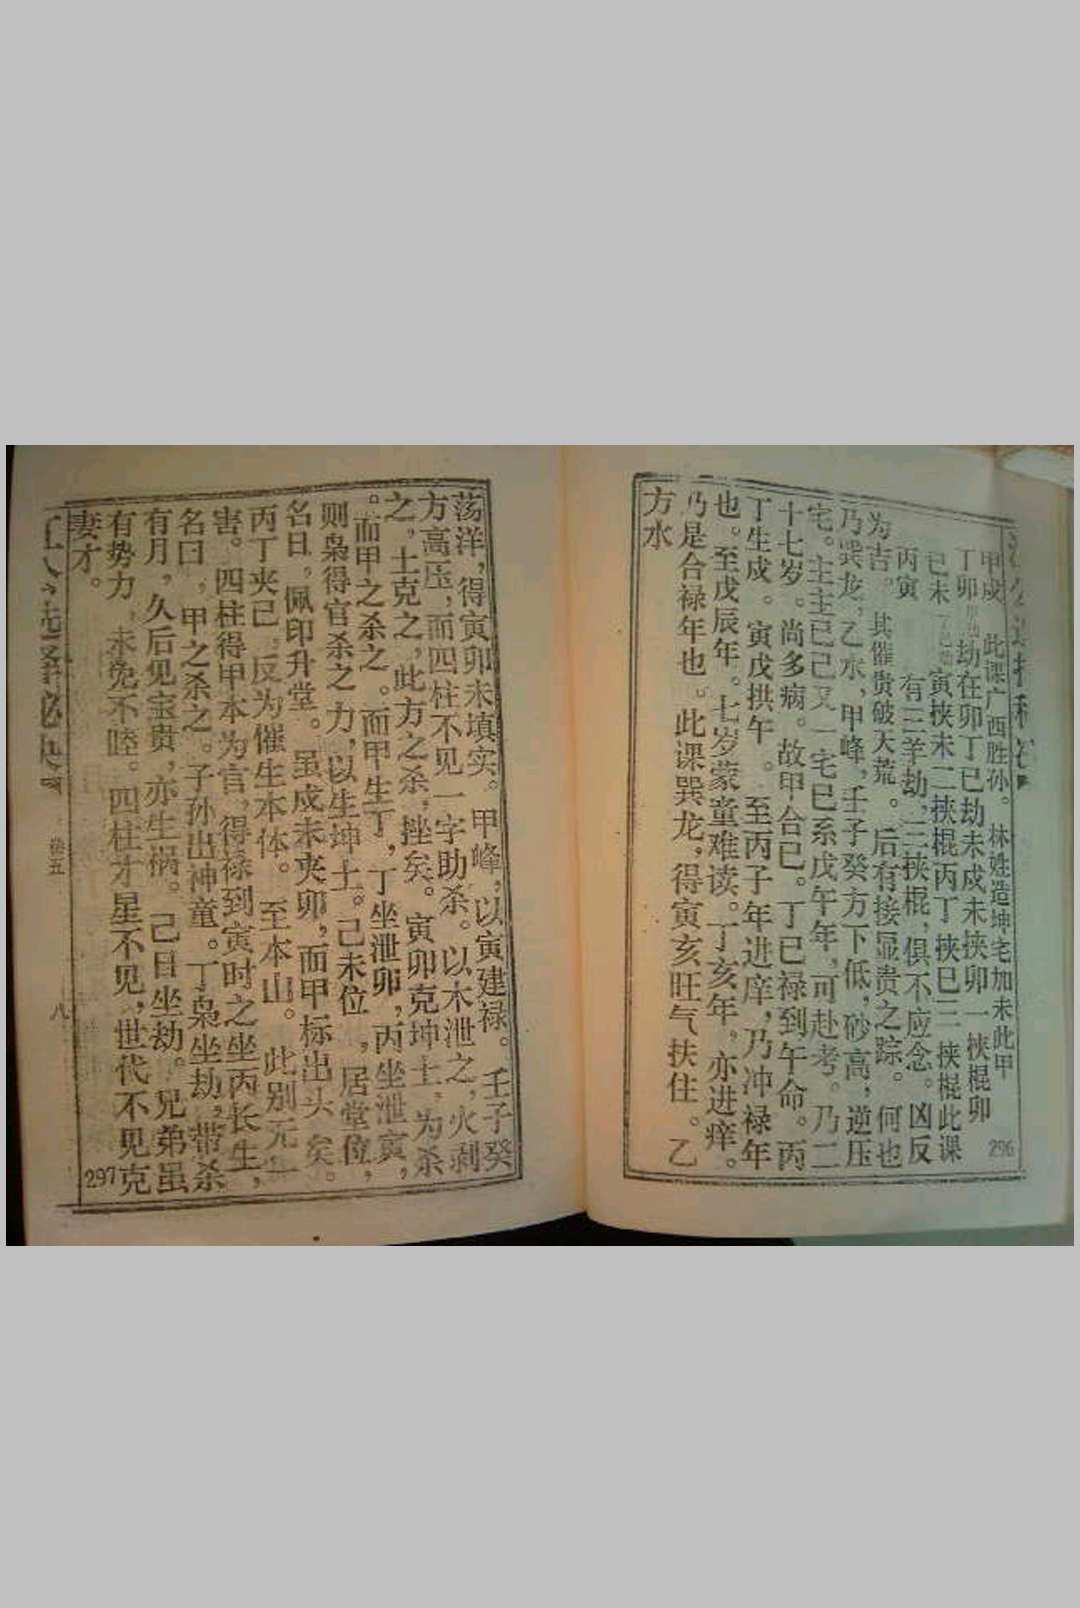 甲戌 此课广西胜孙。林姓造坤宅加未此甲
丁卯 劫在卯丁巳劫未戌未挟卯一挟棍卯
已未 寅挟未二挟棍丙丁挟巳三挟棍此课
丙寅 有三羊劫,三挟棍,俱不应念。凶反
为吉。其催贵破天荒。后有接踪贵之踪。何也
乃巽龙,乙水,甲峰,壬子癸方下低,砂高,逆压
宅。主主已己又一宅巳系戊午年,可赴考。乃二
十七岁。尚多病。故甲合已。丁巳禄到午命。丙
丁生戍。寅戌拱午。至丙子年进庠,乃冲禄年
也。至戊辰年。七岁蒙童难读。丁亥年,亦进痒。
乃是合禄年也。此课巽龙,得寅亥旺气扶住。乙
方水
296
荡洋,得寅卯未填实。甲峰,以寅建禄。壬子癸
方高压,而四柱不见一字助杀。以木泄之,火剥
之,土克之,此方之杀,挫矣。寅卯克坤土,为杀
。而甲之杀之。而甲生丁,丁坐泄卯,丙坐泄寅,
则枭得官杀之力,以生坤土。己未位,居堂位,
名日,佩印升堂。虽戍未夹卯,而甲标出头矣。
丙丁夹己,反为催生本体。至本山。此别无
害。四柱得甲本为官,得禄到寅时之坐丙长生,
名曰,甲之杀之。子孙出神童。丁枭坐劫,带杀
有月,久后见宝贵,亦生祸。己日坐劫。兄弟虽
有势力,未免不睦。四柱才星不见,世代不见克
妻才。
卷五
八
297